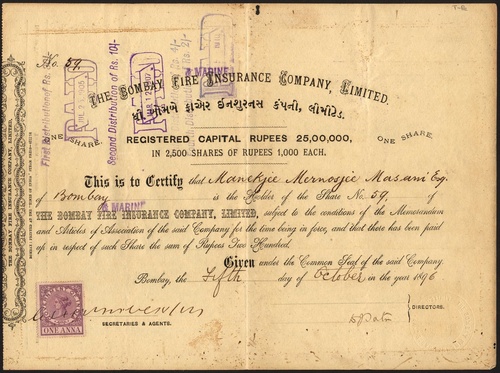 No. 59.
First Distribution of Rs.
PAID
Second Distribution of Rs. 10/-
PAID
MAR 12 1907
Distribution of Rs. 4/-
of Rs. 2/-
THE BOMBAY FIRE INSURANCE COMPANY, LIMITED.
& MARINE
ધી બોમ્બે ફાએર ઈનશુરનસ કંપની, લીમીટેડ.
ONE SHARE.
REGISTERED CAPITAL RUPEES 25,00,000,
ONE SHARE.
IN 2,500 SHARES OF RUPEES 1,000 EACH.
This is to Certify that Manekjee Mernosjee Masani Esq.
of Bombay is the Holder of the Share No. 59, of
& MARINE
THE BOMBAY FIRE INSURANCE COMPANY, LIMITED, subject to the conditions of the Memorandum
and Articles of Association of the said Company for the time being in force, and that there has been paid
up in respect of such Share the sum of Rupees Two Hundred.
Given under the Common Seal of the said Company.
Bombay, the Fifth day of October in the year 1896
DIRECTORS.
ONE ANNA
SECRETARIES & AGENTS.
THE BOMBAY FIRE INSURANCE COMPANY, LIMITED.